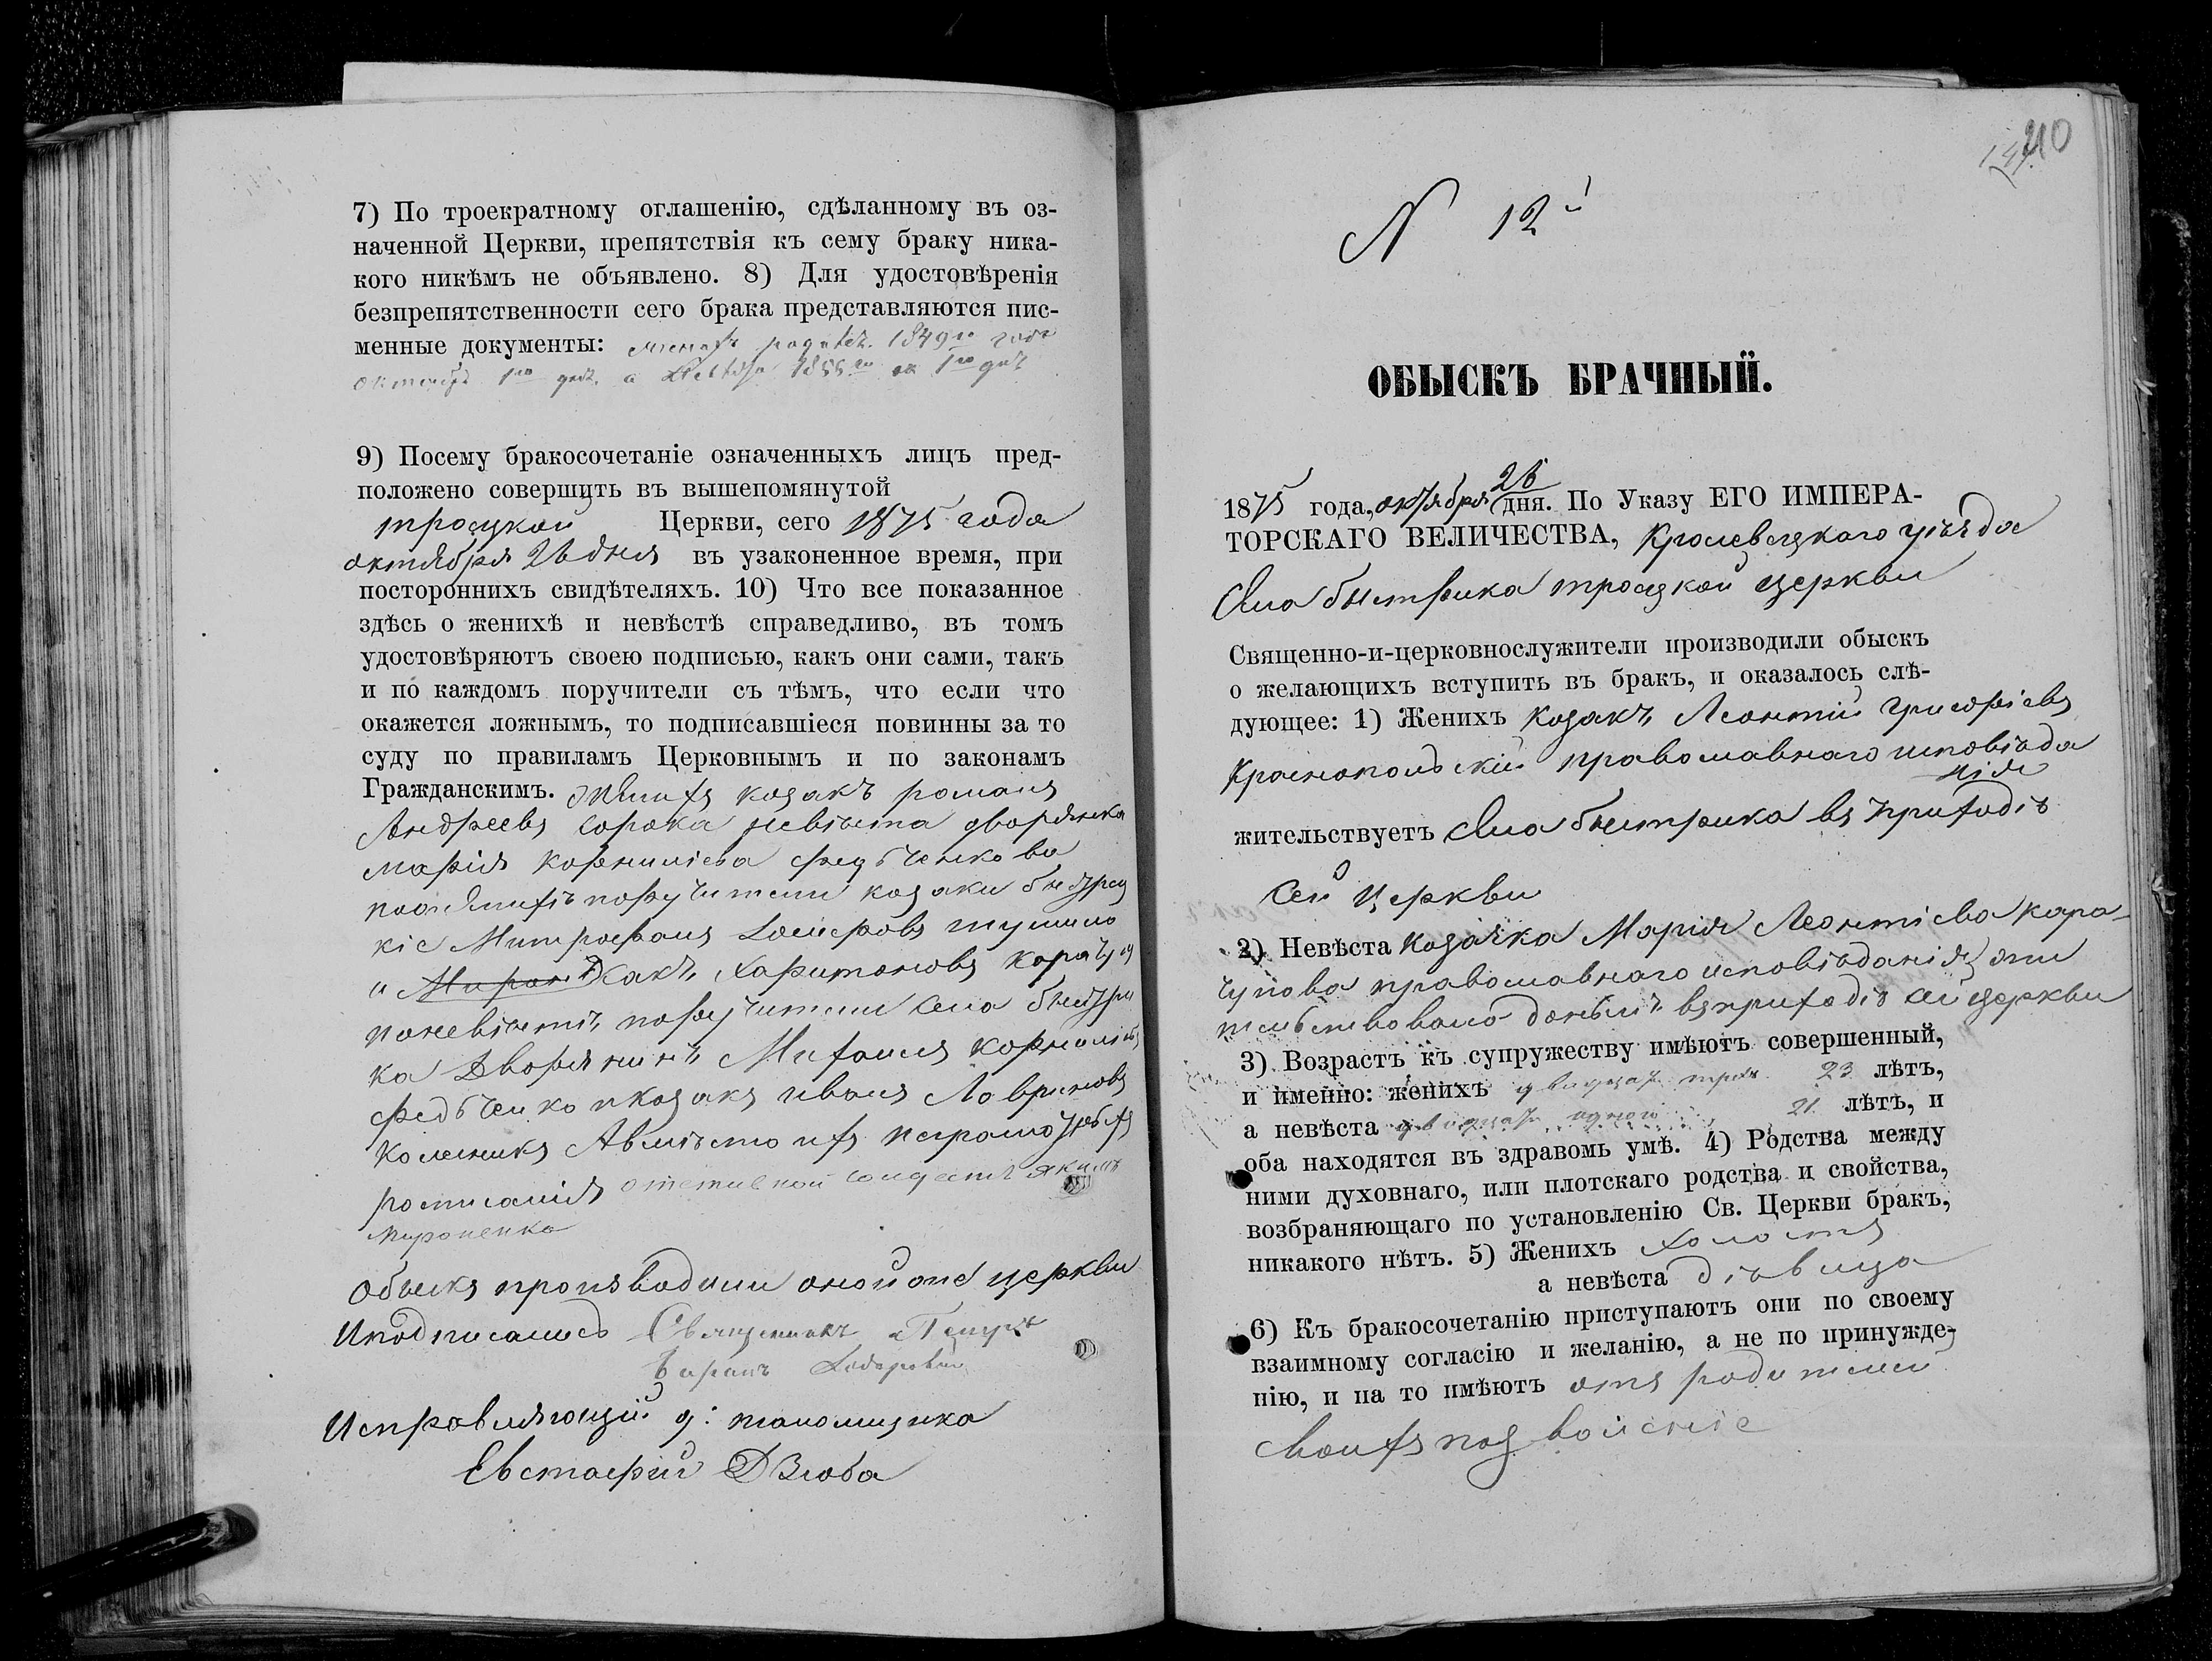 7) По троекратному оглашенію, сдѣланному въ оз-
наченной Церкви, препятствія къ сему браку ника-
кого никѣмъ не объявлено. 8) Для удостовѣренія
безпрепятственности сего брака представляются пис-
менные документы: 1849го года
октября 1го дня, а 1855го 1го дня
9) Посему бракосочетаніе означенныхъ лицъ пред-
положено совершить въ вышепомянутой
троцкой Церкви, сего 1875 года
октября 26 дня въ узаконенное время, при
постороннихъ свидѣтеляхъ. 10) Что все показанное
здѣсь о женихѣ и невѣстѣ справедливо, въ томъ
удостовѣряютъ своею подписью, какъ они сами, такъ
и по каждомъ поручители съ тѣмъ, что если что
окажется ложнымъ, то подписавшіеся повинны за то
суду по правиламъ Церковнымъ и по законамъ
Гражданскимъ. Женихъ козакъ романъ
Андреевъ сорока невѣста дворянка
марія корниліева федьченкова
поженихѣ поручители козаки быстрец
кіе Митрофанъ тушило
и Исакъ Харитоновъ Карачун
поневѣстѣ поручители села быстри
ка Дворянинъ Михаилъ корниліевъ
федьченко икозакъ иванъ Лавриновъ
колесникъ Авмѣсто ихъ неграмотныхъ
росписался отставной солдатъ яким
мироненко
Обыскъ производили оной оне церкви
Иподписались Священникъ Петръ
Исправляющій д: псаломщика
Евстафій Дзюба
210
N 12й
ОБЫСКЪ БРАЧНЫЙ.
1875 года, октября 26 дня. По Указу ЕГО ИМПЕРА-
ТОРСКАГО ВЕЛИЧЕСТВА, Кролевецкаго уѣзда
Села быстрика троцкой церкви
Священно-и-церковнослужители производили обыскъ
о желающихъ вступить въ бракъ, и оказалось слѣ-
дующее: 1) Женихъ козакъ Леонтій григоріевъ
Краснопольскій православнаго исповѣда
нія
жительствуетъ Села быстрика въ приходѣ
сей церкви
2) Невѣста козачка Марія Леонтіева кара-
чунова православнаго исповѣданія жи
тельствовала донынѣ въприходѣ сей церкви
3) Возрастъ къ супружеству имѣютъ совершенный,
и именно: женихъ двадцать трех 23 лѣтъ,
а невѣста двадцать одного 21 лѣтъ, и
оба находятся въ здравомъ умѣ. 4) Родства между
ними духовнаго, или плотскаго родства и свойства,
возбраняющаго по установленію Св. Церкви бракъ,
никакого нѣтъ. 5) Женихъ холостъ
а невѣста дѣвица
6) Къ бракосочетанію приступаютъ они по своему
взаимному согласію и желанію, а не по принужде-
нію, и на то имѣютъ отъ родителей
своихъ позволеніе